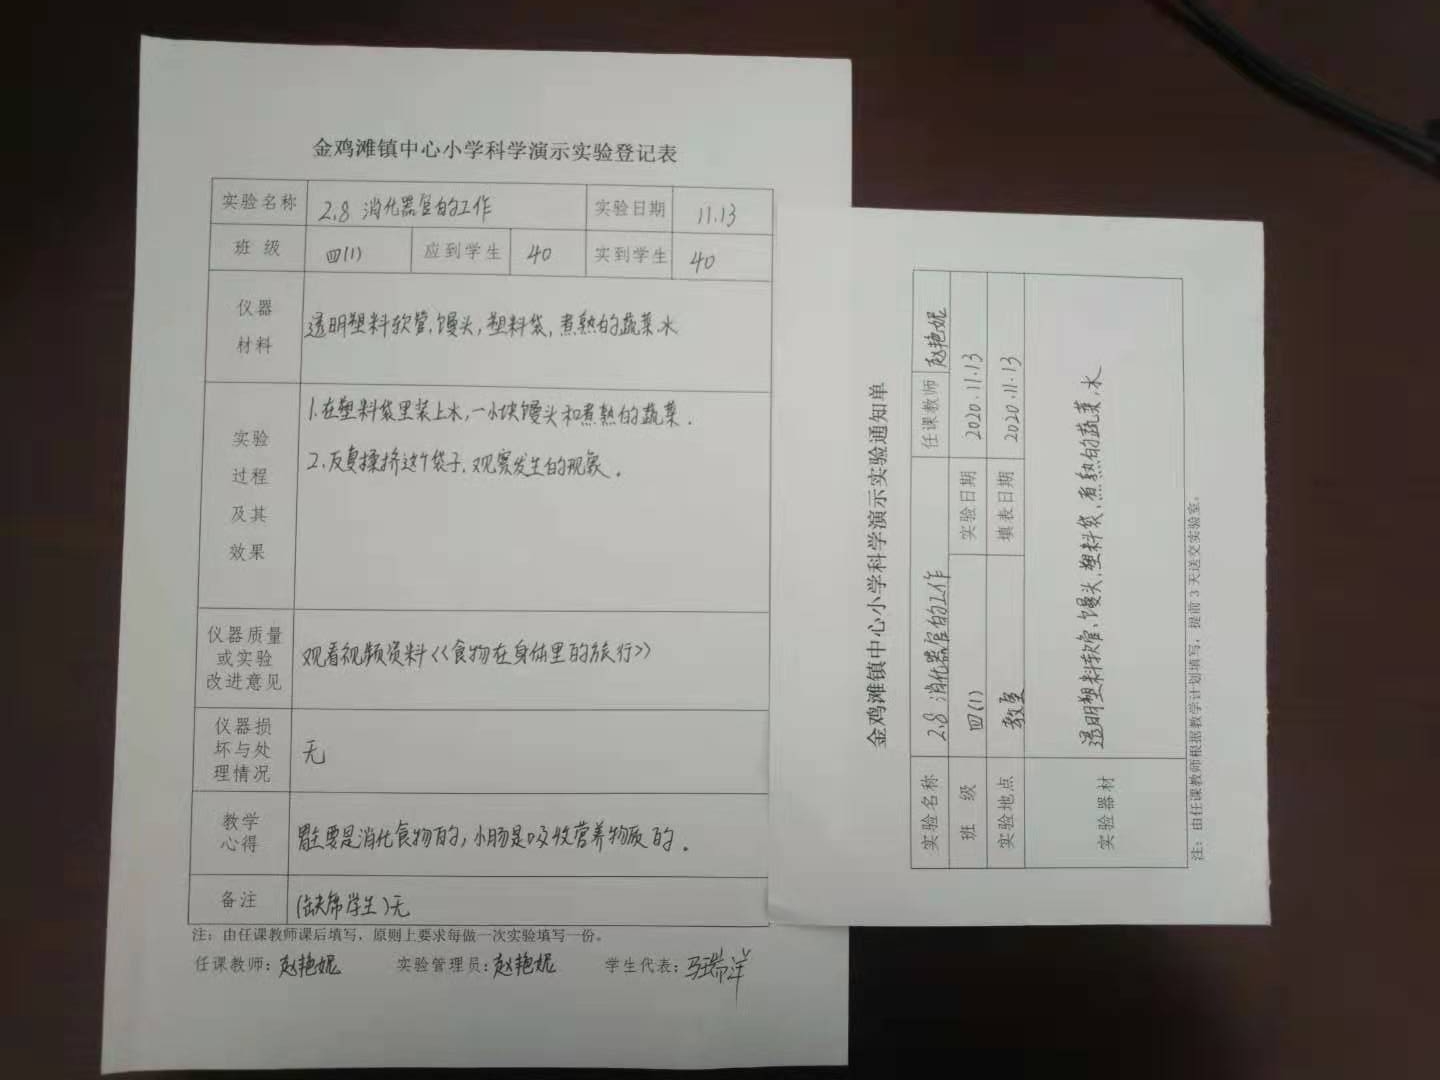 金鸡滩镇中心小学科学演示实验登记表
实验名称 2.8 消化器官的工作 实验日期 11.13
班 级 四(1) 应到学生 40 实到学生 40
仪器
材料
透明塑料软管,馒头,塑料袋,煮熟的蔬菜.水
实验
过程
及其
效果
1.在塑料袋里装上水,一小块馒头和煮熟的蔬菜.
2.反复揉挤这个袋子,观察发生的现象.
仪器质量
或实验
改进意见
观看视频资料<<食物在身体里的旅行>>
仪器损
坏与处
理情况
无
教学
心得
胃主要是消化食物的,小肠是吸收营养物质的.
备注 (缺席学生)无
注：由任课教师课后填写，原则上要求每做一次实验填写一份。
任课教师：赵艳妮 实验管理员：赵艳妮 学生代表：马瑞洋
金鸡滩镇中心小学科学演示实验通知单
实验名称 2.8 消化器官的工作 任课教师 赵艳妮
班 级 四(1) 实验日期 2020.11.13
实验地点 教室 填表日期 2020.11.13
实验器材 透明塑料软管,馒头,塑料袋,煮熟的蔬菜,水
注：由任课教师根据教学计划填写，提前 3 天送交实验室。